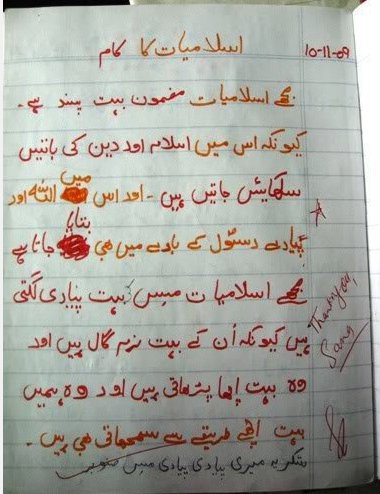 10-11-09
اسلامیات کا کام
مجھے اسلامیات مضمون بہت پسند ہے۔
کیونکہ اس میں اسلام اور دین کی باتیں
سکھایئں جاتیں ہیں۔ اور اس میں اللہ اور
پیارے رسول کے بارے میں بھی بتایا جاتا ہے
مجھے اسلامیات مِس بہت پیاری لگتی
ہیں کیونکہ اُن کے بہت نرم گال ہیں اور
وہ بہت اچھا پڑھاتی ہیں اور وہ ہمیں
بہت اچھے طریقے سے سمجھاتی بھی ہیں۔
شکریہ میری پیاری پیاری مِس صنوبر
Thankyou,
Sana